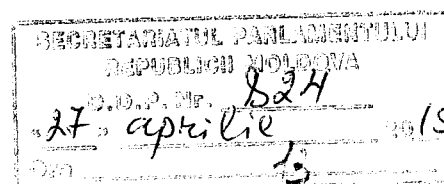 SECRETARIATUL PARLAMENTULUI
REPUBLICII MOLDOVA
D.D.P. Nr. 824
"27" aprilie 2015
Ora 13